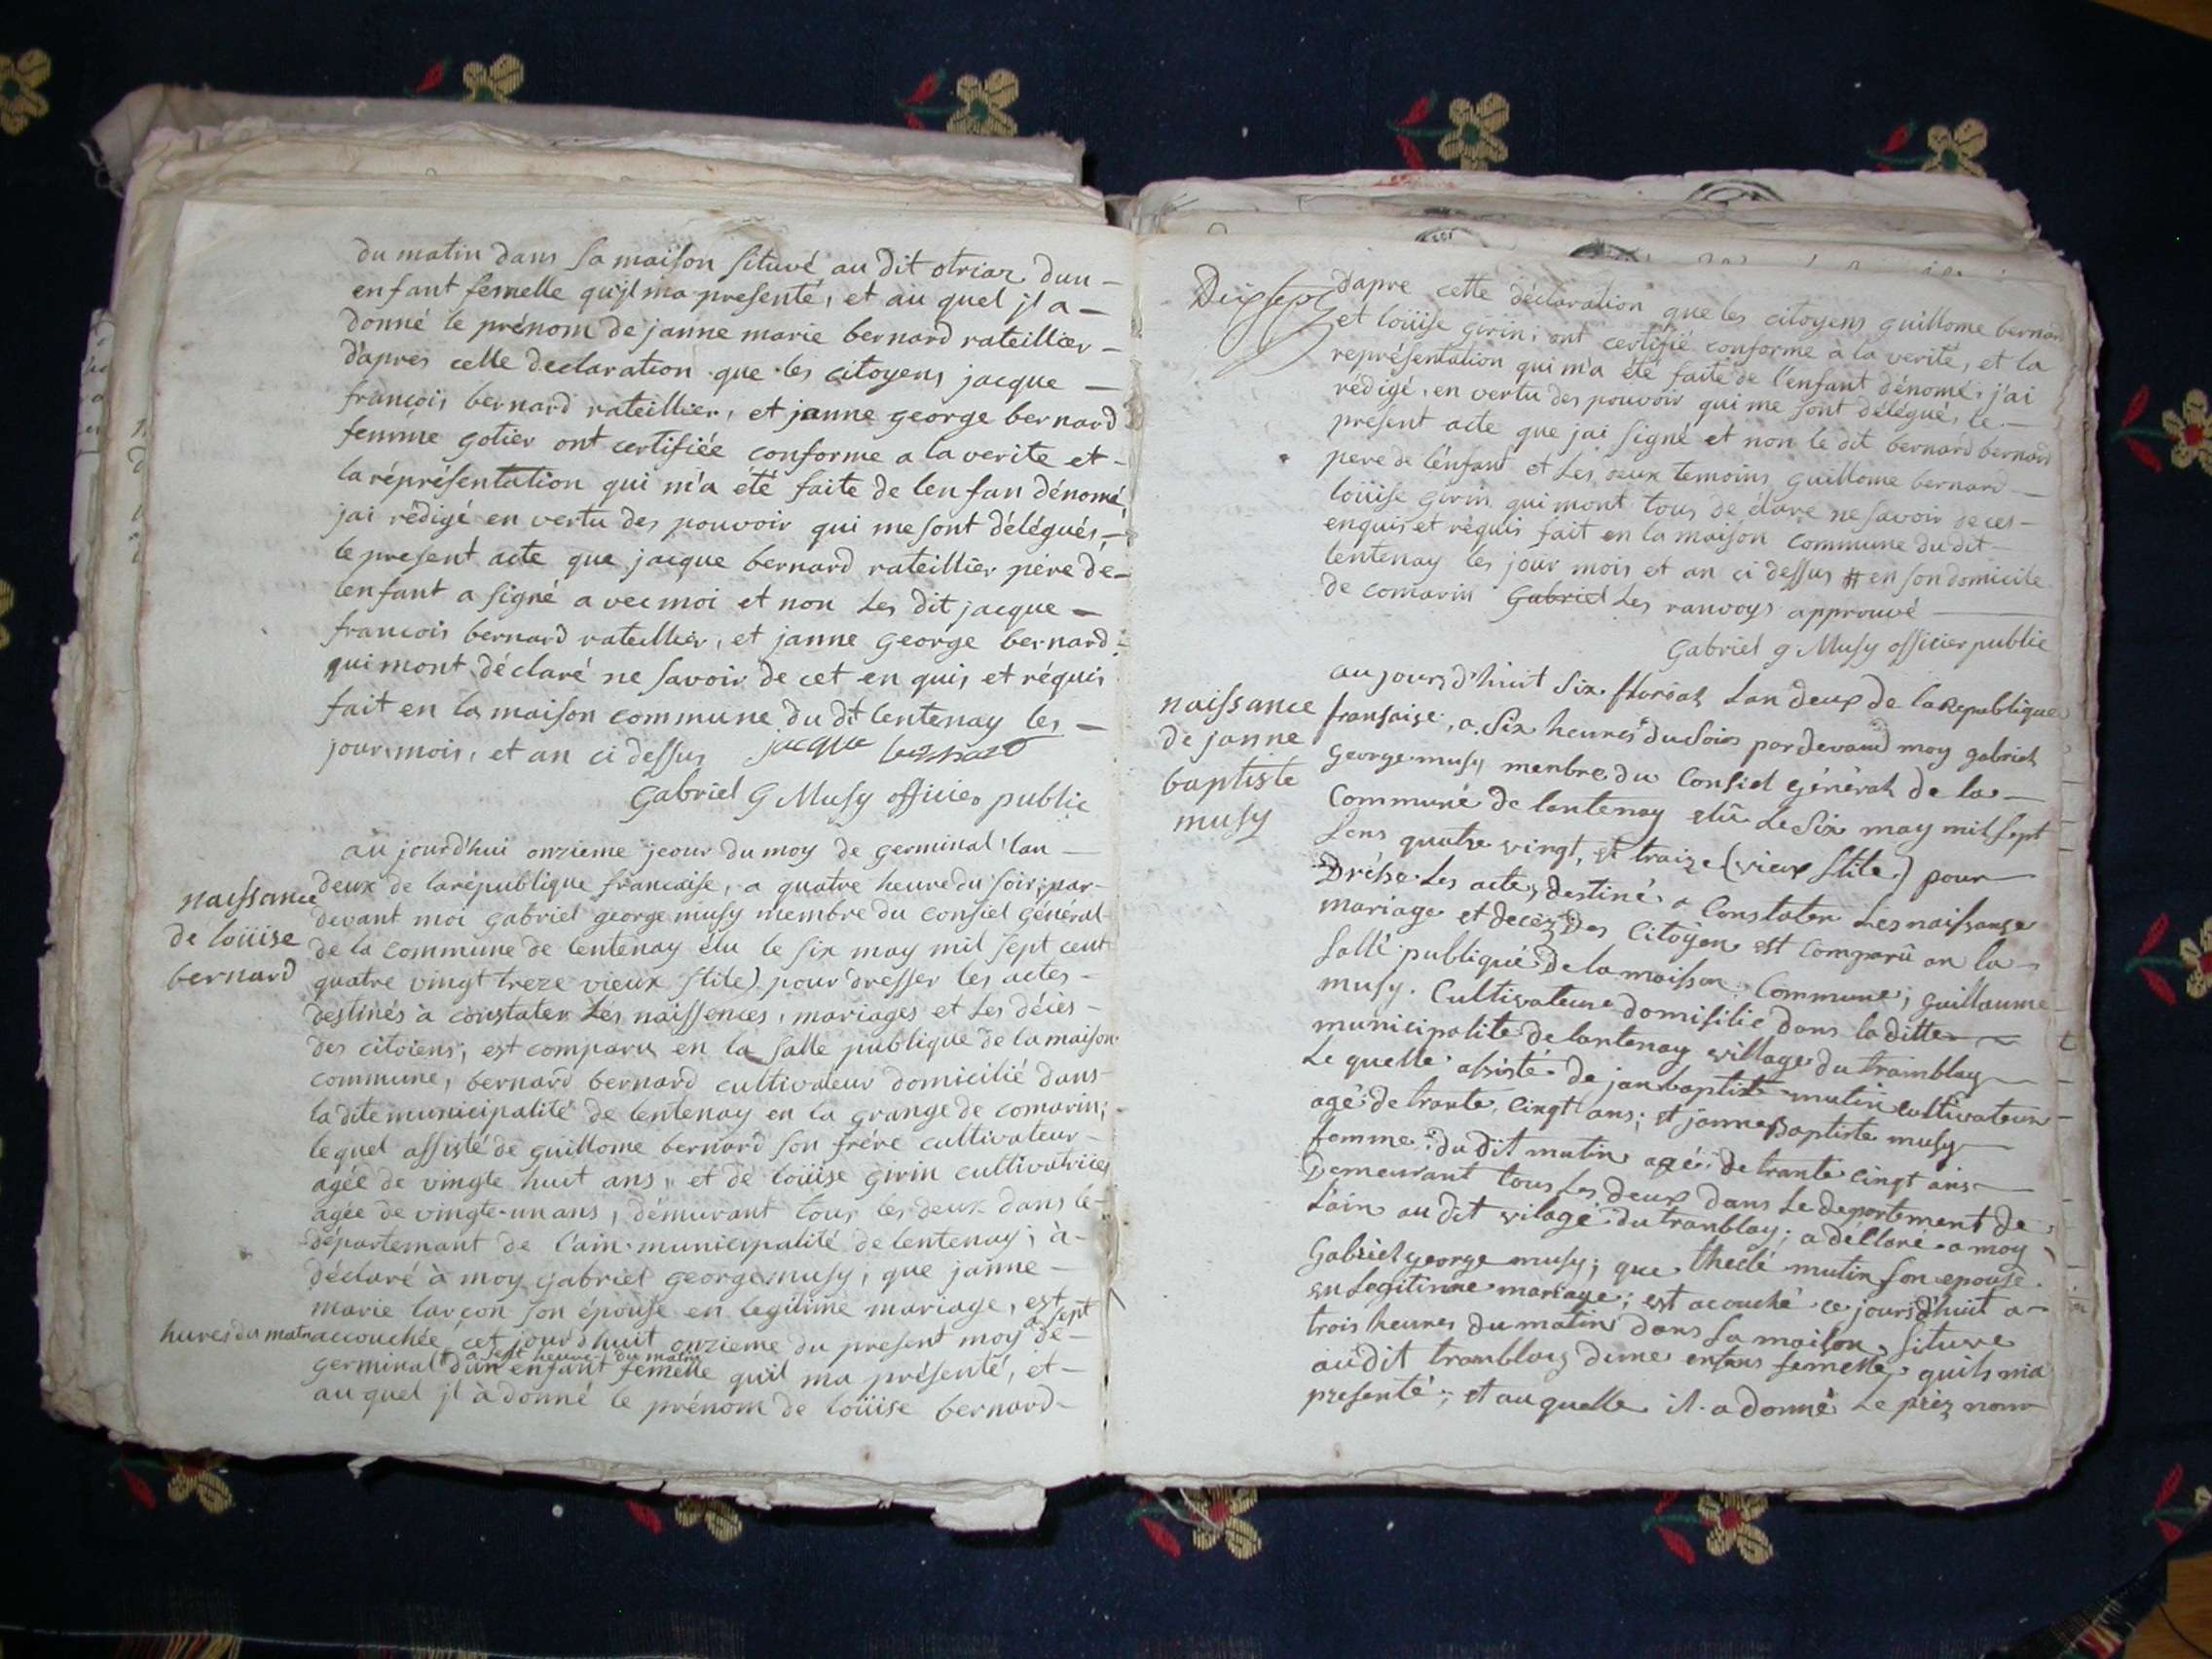 du matin dans sa maison situé au dit otriaz dun -
enfant femelle qu'jl ma presenté, et au quel jl a -
donné le prénom de janne marie bernard rateillier -
d'apres celle declaration que les citoyens jacque -
françois bernard rateillier, et janne george bernard
femme gotier ont certifiée conforme a la verite et -
la réprésentation qui m'a été faite de lenfan dénomé,
jai rédigé en vertu des pouvoir qui me sont délégués, -
le present acte que jacque bernard rateillier pére de -
lenfant a signé avec moi et non les dit jacque -
francois bernard rateillier, et janne george bernard
qui mont déclaré ne savoir de cet enquis et réquis
fait en la maison commune du dt lentenay les -
jour, mois, et an ci dessus jacque bernard
Gabriel G Musy officier public
naissance
de loüise
bernard
au jourd'hui onzieme jeour du moy de germinal lan -
deux de larépublique francaise, a quatre heure du soir, par-
devant moi gabriel george musy membre du consiel général
de la commune de lentenay élu le six may mil sept cent
quatre vingt treze vieux stile) pour dresser les actes -
destinés à constater Les naissences, mariages et les déces -
des citoiens, est comparu en la salle publique de la maison
commune, bernard bernard cultivateur domicilié dans
la dite municipalité de lentenay en la grange de comarin;
le quel assisté de guillome bernard son frére cultivateur -
agée de vingte huit ans, et de loüise girin cultivatrice
agée de vingte-un ans, démurant tous les deux dans le -
départemant de l'ain municipalité de lentenay; à -
déclaré à moy gabriel george musy, que janne -
marie larçon son épouse en legitime mariage, est
accouchée cet jourdhuit onzieme du present moy de - a sept
hures du matin
germinal dun enfant femelle quil ma présenté, et -
a sept heure du matin
au quel jl à donné le prénom de loüise bernard -
Dixsept
dapre cette déclaration que les citoyens guillome bernard
et loüise girin, ont certifié conforme à la verité, et la
représentation qui m'a été faite de l'enfant dénomé, j'ai
rédigé, en vertu des pouvoir qui me sont délégué, le -
présent acte que jai signé et non le dit bernard bernard
pere de l'énfant et Les deux temoins guillome bernard -
loüise girin qui mont tous déclaré ne savoir de ces -
enquis et réquis fait en la maison commune du dit -
lentenay les jour mois et an ci dessus # en son domicile
de comarin Gabriel Les ranvoys approuvé
Gabriel g Musy officier public
naissance
de janne
baptiste
musy
aujours d'huit six floréal Lan deux de la Republique
fransaise, a six heures du soir pardevand moy gabriel
George musy menbre du Consiel général de la -
Commune de lantenay elû Le Six may mil sept
Sens quatre vingt, et traize (vieux stile) pour
Drésse Les actes, destiné a Constater Les naissanse
mariage et decéz des Citoyen est comparû an la -
Sallé publique de la maison Commune; guillaume
musy. Cultivateur domisilié dans laditte
municipalite de lantenay village du tramblay
Le quelle assisté de jan baptiste mutin cultivateur
agé de trante cinqt ans; et janne Baptiste musy
femme du dit mutin agé de trante cinqt ans
Demeurant tous Les deux dans Le departement de
L'ain au dit vilage du tranblay; a déclaré a moy
Gabriel george musy; que theclé mutin son epouse
en Legitime mariage; est acouché ce jours d'huit a -
trois heures du matin dans sa maison siture
audit tramblay d'une enfans femelle quils m'a
presenté; et au quelle il a donné Le préz nom